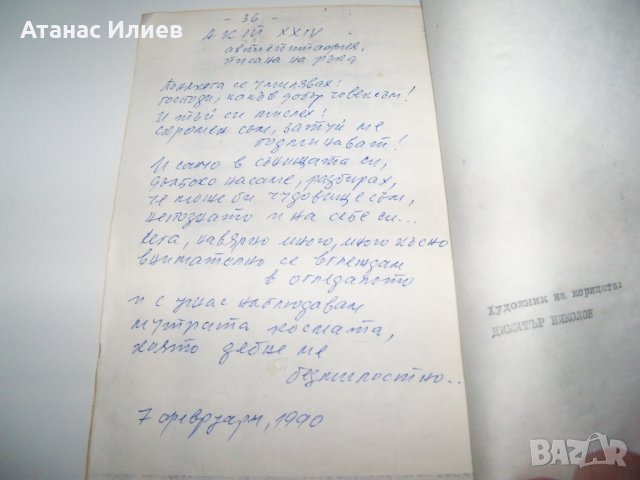 Атанас Илиев
- 36 -
АКТ XXIV
автоепитафия,
писана на ръка
Понякога се умилявах:
Господи, какъв добър човек съм!
И тъй си мислех:
скромен съм, затуй ме
подминават!
И само в сънищата си,
дълбоко насаме, разбирах,
че може би чудовище съм,
непознато и на себе си...
Сега, навярно много, много късно
внимателно се вглеждам
в огледалото
и с ужас наблюдавам
мутрата космата,
която дебне ме
безмилостно..
7 февруари, 1990
Художник на корицата:
ДИМИТЪР НИКОЛОВ
BAZAR
bg